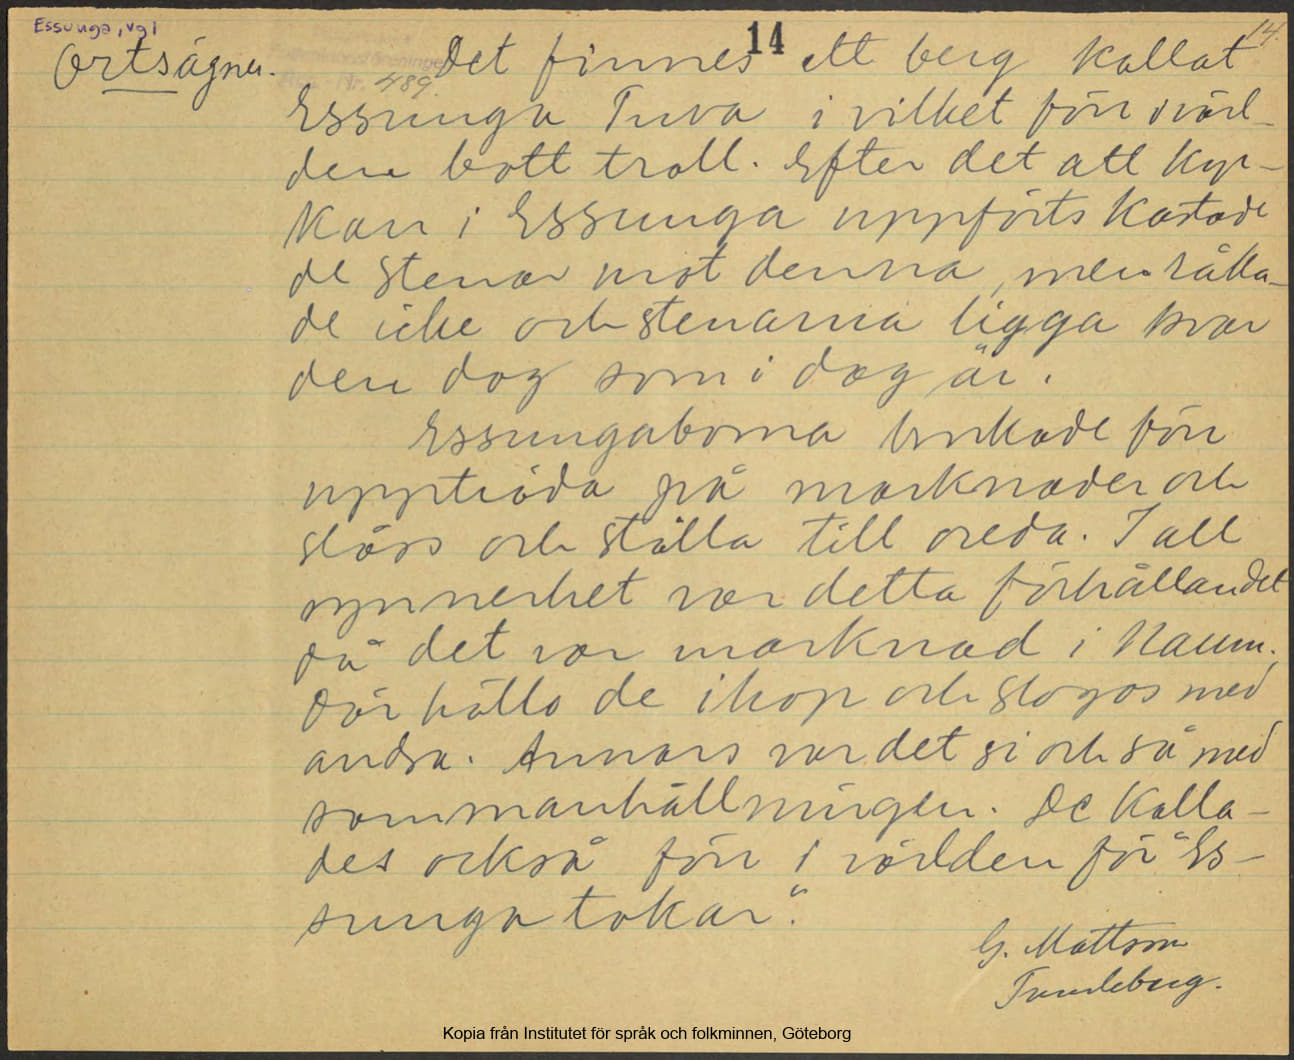 Essunga, vgl
14
14.
Ortsägner.
489.
Det finnes ett berg kallat
Essunga Tuva i vilket förr i värl-
den bott troll. Efter det att kyr-
kan i Essunga uppförts kastade
de stenar mot denna, men råka-
de icke och stenarna ligga kvar
den dag som i dag är.
Essungaborna brukade förr
uppträda på marknader och
slåss och ställa till oreda. I all
synnerhet var detta förhållandet
då det var marknad i Naum.
Där hållo de ihop och slogos med
andra. Annars var det si och så med
sammanhållningen. De kalla-
des också förr i världen för "Es-
sunga tokar".
G. Mattson
Trudeberg.
Kopia från Institutet för språk och folkminnen, Göteborg